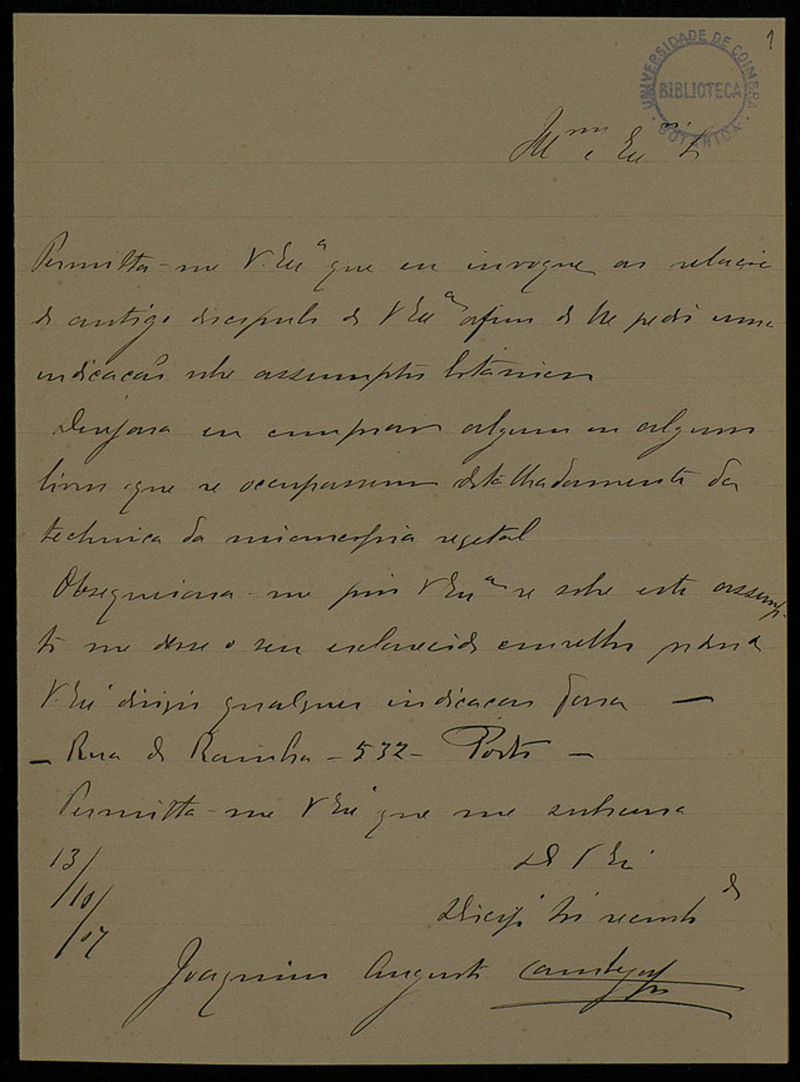 1
UNIVERSIDADE DE COIMBRA
BIBLIOTECA
BOTANICA
Permitta-me V. Exª que eu invoque as relações
de antigo discipulo de V Exª afim de lhe pedir uma
indicação sobre assumptos botanicos
Desejava eu comprar algum ou alguns
livros que se occupassem detalhadamente da
technica da microscopia vegetal
Obsequiava-me pois V Exª se sobre este assump-
to me desse o seu esclarecido conselho podendo
V. Exª dirigir qualquer indicação para —
— Rua da Rainha - 532 - Porto —
Permitta-me V Exª que me subscreva
De V Exª
13/10/07
Joaquim Augusto